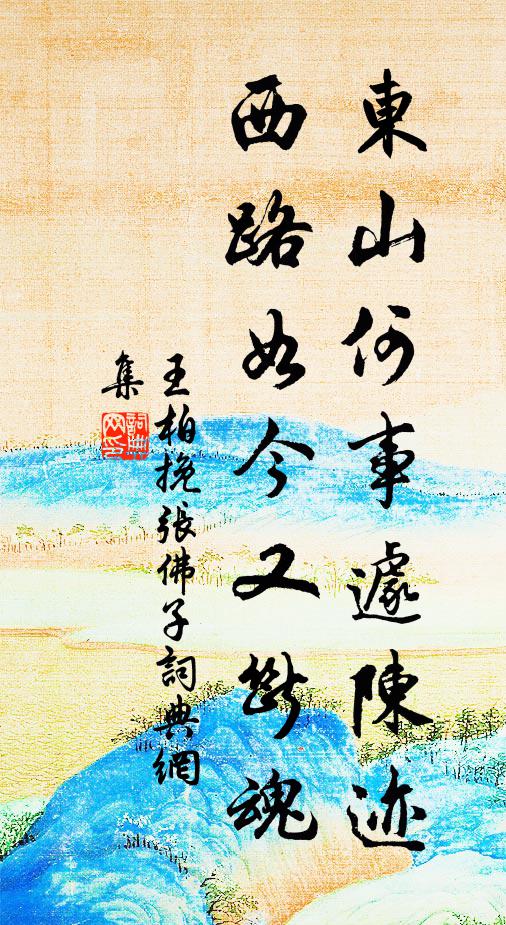 東山何事遽陳迹
西路如今又斷魂
王柏挽張佛子詞典網
集
詞典網印